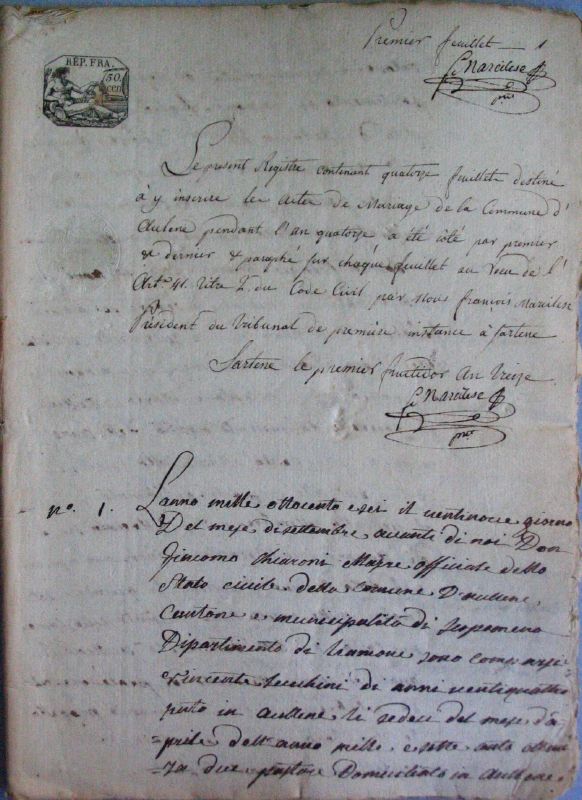 Premier feuillet 1
REP. FRA.
50.
cen
Le present Registre contenant quatorze feuillets destiné
à y inscrire les actes de Mariage de la Commune d'
Aulene pendant l'an quatorze a été côté par premier
& dernier & paraphé sur chaque feuillet au vœu de l'
Art. 41. Titre 2. du Code Civil par Nous françois Marcilese
Président du Tribunal de premiere instance à Sartene
Sartene le premier fructidor An treize.
no. 1. L'anno mille ottocento e sei il ventinove giorno
Del mese di settembre avanti di noi Don
Giacomo Chiaroni Maire officiale dello
Stato civile della comune D'aullene
cantone e municipalità di Scopamena
Dipartimento di Liamone sono comparsi
Vincente Lecchini di anni ventiquattro
nato in aullene li sedeci del mese d'a
=prile dell'anno mille e sette cento ottan
=ta due pastore Domiciliato in aullene